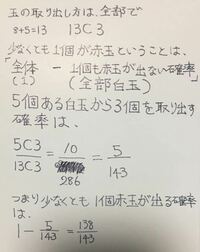 玉の取り出し方は、全部で
8+5=13 13C3
少なくても1個が赤玉ということは、
「全体 − 1個も赤玉が出ない確率」
(1) (全部白玉)
5個ある白玉から3個を取り出す
確率は、
5C3/13C3 = 10/286 = 5/143
つまり少なくても1個赤玉が出る確率
は、
1 − 5/143 = 138/143